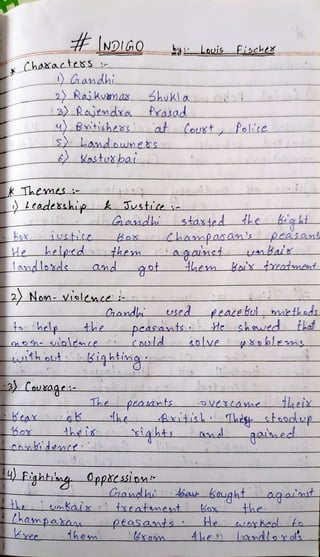 # INDIGO by:- Louis Fischer
* Characters :-
1) Gandhi
2) Rajkumar Shukla
3) Rajendra Prasad
4) Britishers at Court, Police
5) Landowners
6) Kasturbai
* Themes :-
1) Leadership & Justice :-
Gandhi started the fight
for justice for Champaran's peasant
He helped them against unfair
landlords and got them fair treatment
2) Non-violence :-
Gandhi used peaceful methods
to help the peasants. He showed that
non-violence could solve problems
without fighting.
3) Courage:-
The peasants overcame their
fear of the British. They stoodup
for their rights and gained
confidence.
4) Fighting Oppression:-
Gandhi fought against
the unfair treatment for the
Champaran peasants. He worked to
free them from the landlord's